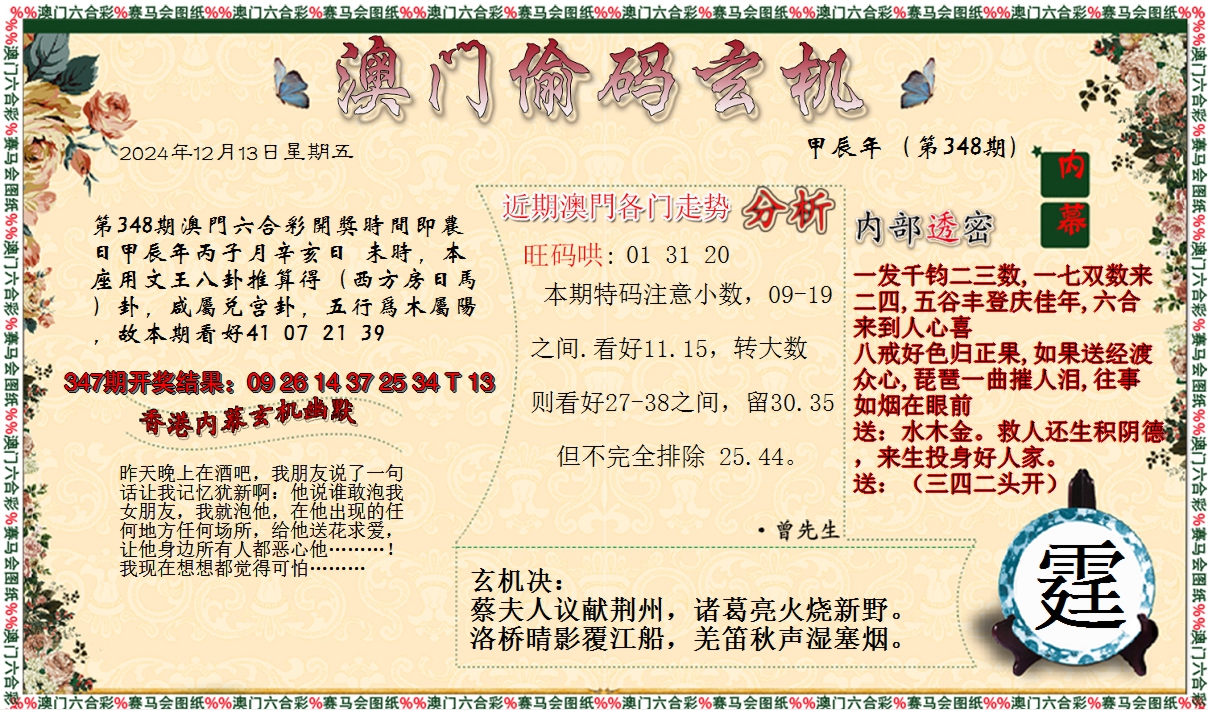 %%澳门六合彩%赛马会图纸%%澳门六合彩%赛马会图纸%%澳门六合彩%赛马会图纸%%澳门六合彩%赛马会图纸%%澳门六合彩%赛马会图纸%%澳门六合彩%赛马会图纸%%
澳门偷码玄机
2024年12月13日星期五
甲辰年（第348期）
内幕
第348期澳門六合彩開獎時間即農
日甲辰年丙子月辛亥日 未時，本
座用文王八卦推算得（西方房日馬
）卦，咸屬兑宫卦，五行爲木屬陽
，故本期看好41 07 21 39
347期开奖结果：09 26 14 37 25 34 T 13
香港内幕玄机幽默
昨天晚上在酒吧，我朋友说了一句
话让我记忆犹新啊：他说谁敢泡我
女朋友，我就泡他，在他出现的任
何地方任何场所，给他送花求爱，
让他身边所有人都恶心他………！
我现在想想都觉得可怕………
近期澳門各门走势 分析
旺码哄: 01 31 20
本期特码注意小数，09-19
之间.看好11.15，转大数
则看好27-38之间，留30.35
但不完全排除 25.44。
·曾先生
玄机决：
蔡夫人议献荆州，诸葛亮火烧新野。
洛桥晴影覆江船，羌笛秋声湿塞烟。
内部透密
一发千钧二三数,一七双数来
二四,五谷丰登庆佳年,六合
来到人心喜
八戒好色归正果,如果送经渡
众心,琵琶一曲摧人泪,往事
如烟在眼前
送：水木金。救人还生积阴德
，来生投身好人家。
送：（三四二头开）
霆
%%澳门六合彩%赛马会图纸%%澳门六合彩%赛马会图纸%%澳门六合彩%赛马会图纸%%澳门六合彩%赛马会图纸%%澳门六合彩%赛马会图纸%%澳门六合彩%赛马会图纸%%